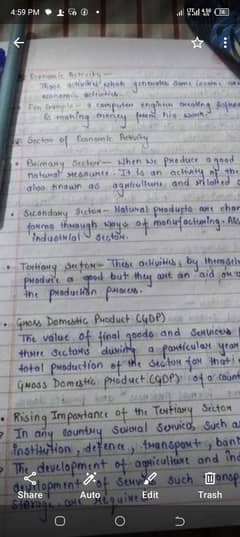 4:59 PM
Economic Activity —
Those activities which generates some income are
economic activities.
For Example – a computer engineer creating software
& making money from his work.
Sector of Economic Activity
• Primary Sector – When we produce a good
natural resource. It is an activity of the
also known as agriculture, and related
• Secondary Sector – Natural products are chan
forms through ways of manufacturing. Als
industrial sector.
• Tertiary Sector – These activities, by themsel
produce a good but they are an aid or a
the production process.
• Gross Domestic Product (GDP)
The value of final goods and services
three sectors during a particular year
total production of the sector for that
Gross Domestic product (GDP) of a count
• Rising Importance of the Tertiary Sector
In any country several services, such as
institution, defence, transport, bank
The development of agriculture and ind
development of services such transp
storage are require
Share
Auto
Edit
Trash